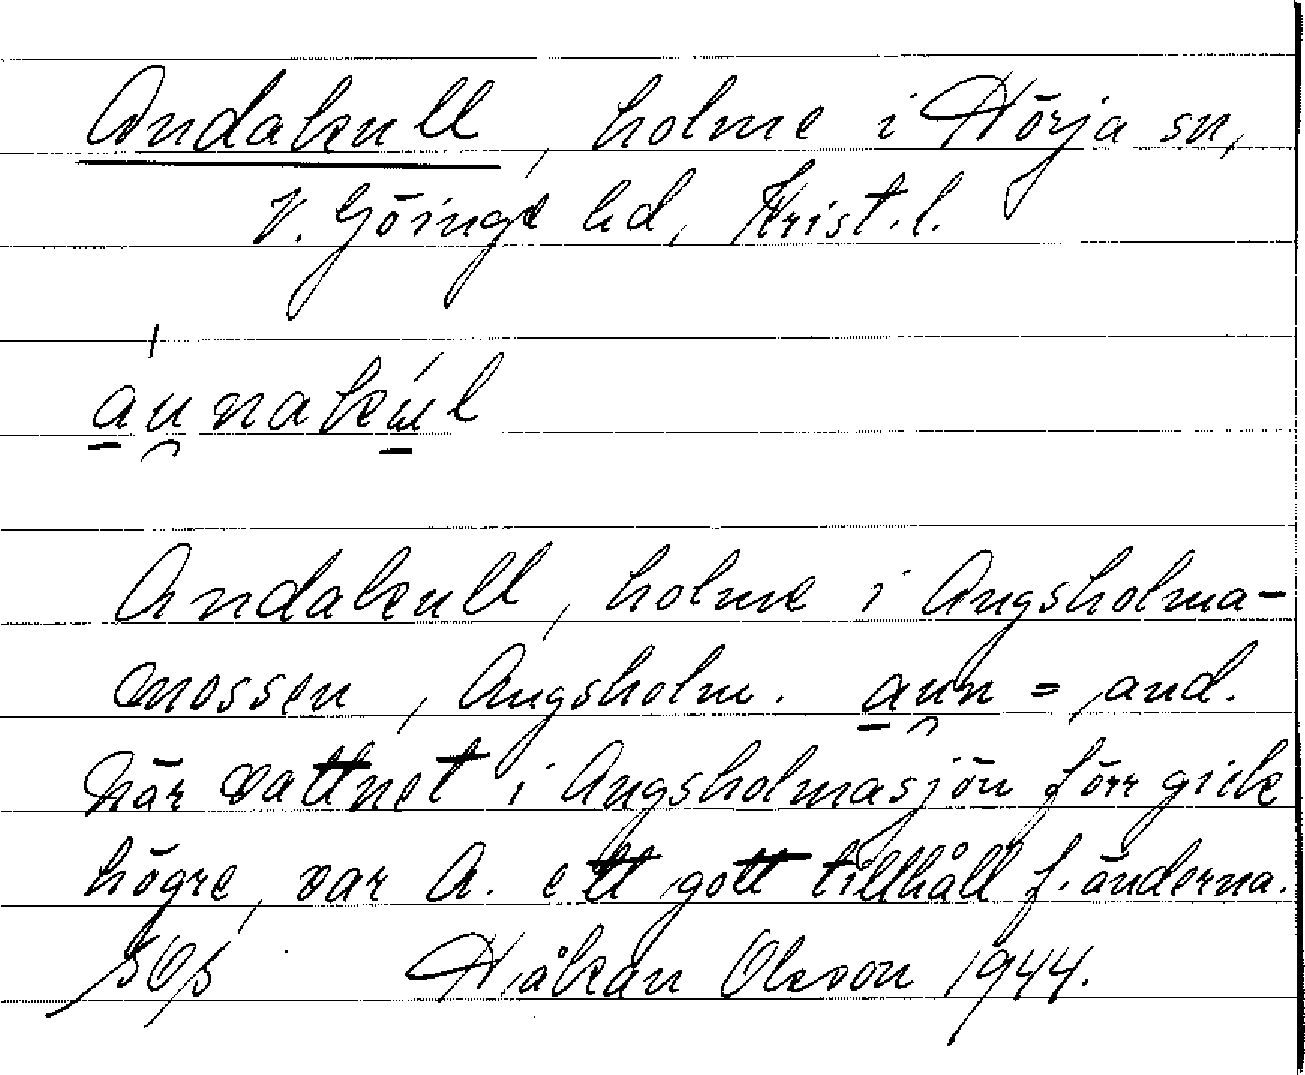 Andakull, holme i Hörja sn,
V. Göinge hd, Krist. l.
annakul
Andakull, holme i Angsholma-
mossen, Angsholm. ann = and.
När vattnet i Angsholmasjön förr gick
högre, var A. ett gott tillhåll f. änderna.
Håkan Olsson 1944.